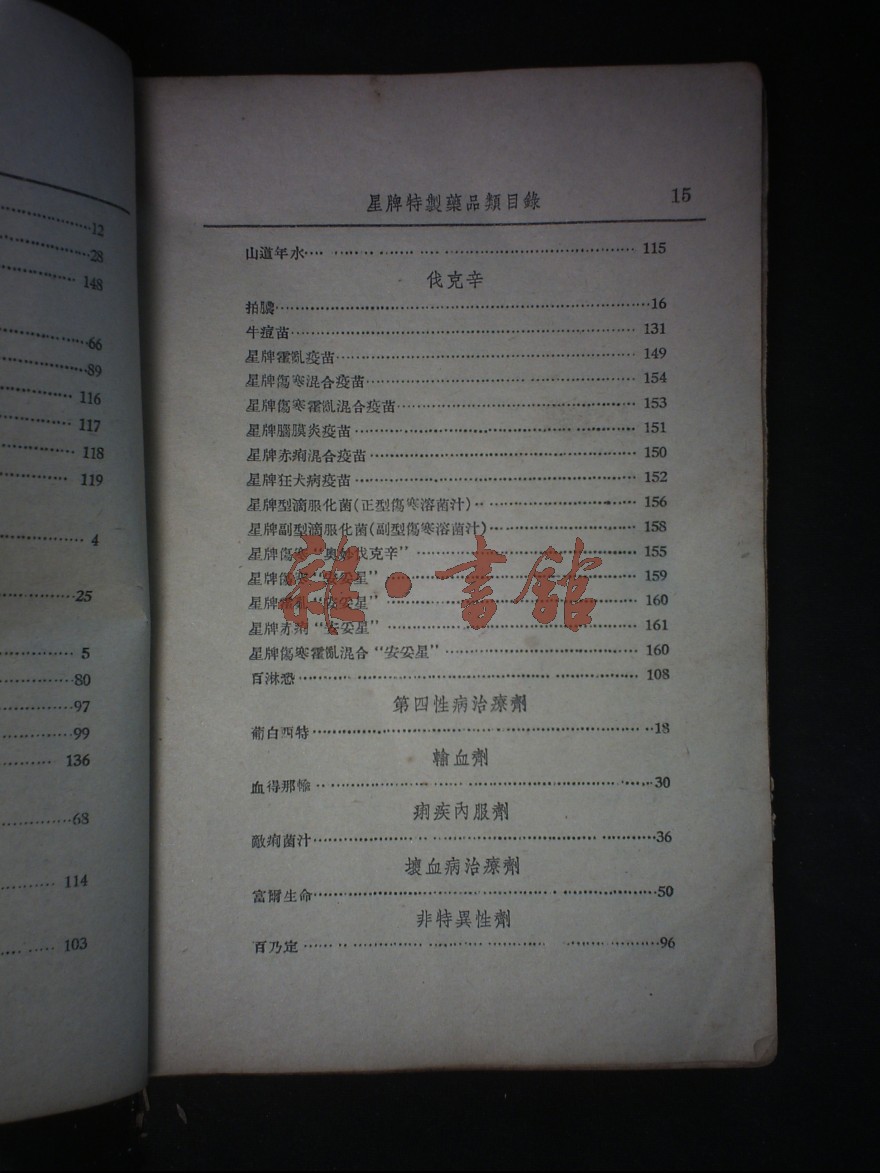 12
28
148
66
89
116
117
118
119
4
25
5
80
97
99
136
68
114
103
星牌特製藥品類目錄 15
山道年水 115
伐克辛
拍膿 16
牛痘苗 131
星牌霍亂疫苗 149
星牌傷寒混合疫苗 154
星牌傷寒霍亂混合疫苗 153
星牌腦膜炎疫苗 151
星牌赤痢混合疫苗 150
星牌狂犬病疫苗 152
星牌型滴服化菌(正型傷寒溶菌汁) 156
星牌副型滴服化菌(副型傷寒溶菌汁) 158
星牌傷寒“奧妙伐克辛” 155
星牌傷寒“安妥星” 159
星牌霍亂“安妥星” 160
星牌赤痢“安妥星” 161
星牌傷寒霍亂混合“安妥星” 160
百淋恐 108
第四性病治療劑
葡白西特 18
輸血劑
血得那 30
痢疾內服劑
敵痢菌汁 36
壞血病治療劑
富爾生命 50
非特異性劑
百乃定 96
雜·書館